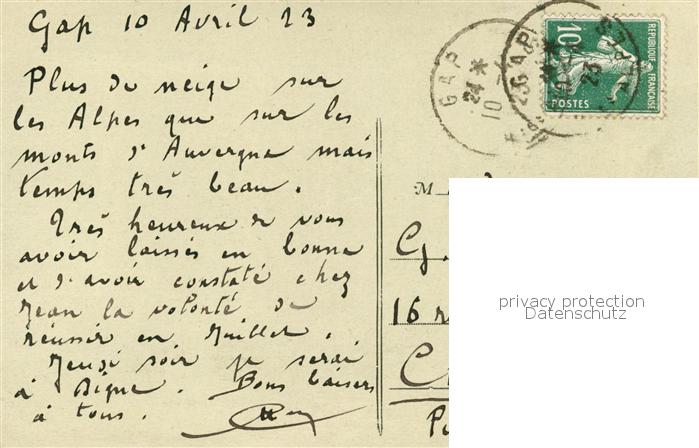 Gap 10 Avril 23
Plus de neige sur
les Alpes que sur les
monts d'Auvergne mais
temps très beau.
Très heureux de vous
avoir laissés en bonne
et d'avoir constaté chez
Jean la volonté de
réussir en Juillet.
Jeudi soir je serai
à Digne. Bons baisers
à tous.
GAP
24 *
10
GAP
23
10c
REPUBLIQUE FRANÇAISE
POSTES
M
G.
16 r
privacy protection
Datenschutz